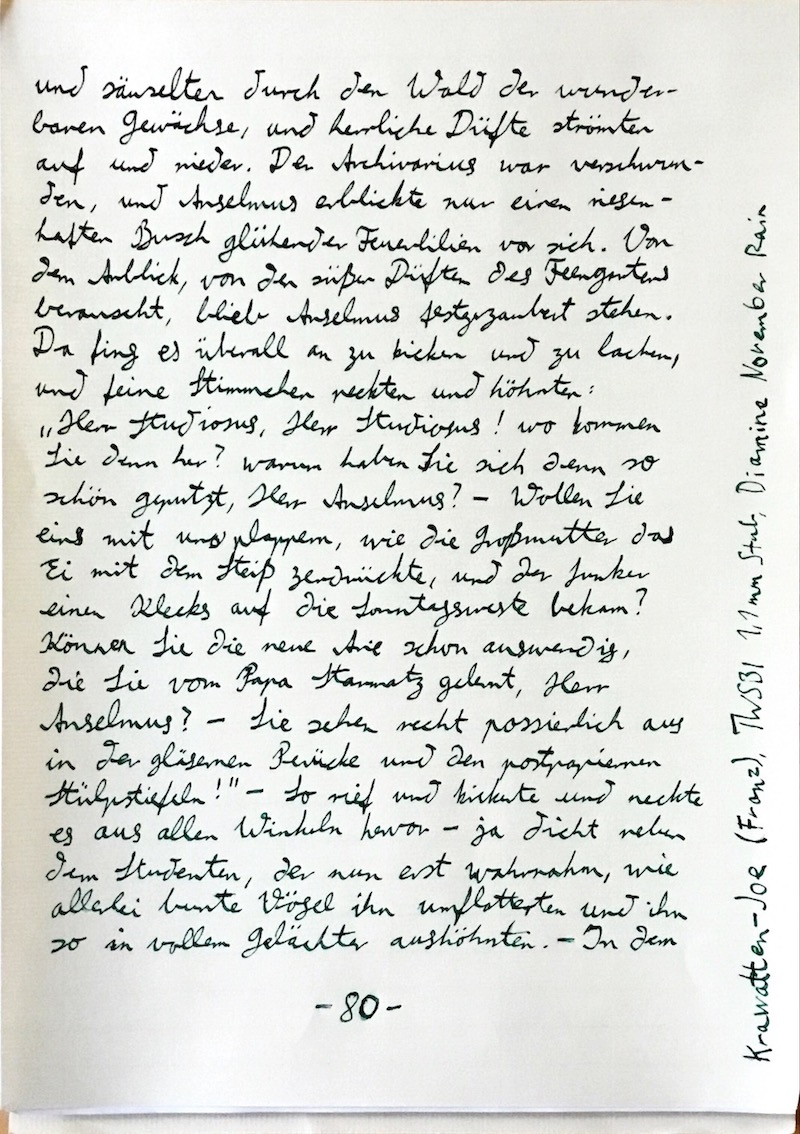 und säuselten durch den Wald der wunder-
baren Gewächse, und herrliche Düfte strömten
auf und nieder. Der Archivarius war verschwun-
den, und Anselmus erblickte nur einen riesen-
haften Busch glühender Feuerlilien vor sich. Von
dem Anblick, von den süßen Düften des Feengartens
berauscht, blieb Anselmus festgezaubert stehen.
Da fing es überall an zu kickern und zu lachen,
und feine Stimmchen neckten und höhnten:
„Herr Studiosus, Herr Studiosus! wo kommen
Sie denn her? warum haben Sie sich denn so
schön geputzt, Herr Anselmus? – Wollen Sie
eins mit uns plappern, wie die Großmutter das
Ei mit dem Steiß zerdrückte, und der Junker
einen Klecks auf die Sonntagsweste bekam?
Können Sie die neue Arie schon auswendig,
die Sie vom Papa Starmatz gelernt, Herr
Anselmus? – Sie sehen recht possierlich aus
in der gläsernen Perücke und den postpapiernen
Stülpstiefeln!" – So rief und kickerte und neckte
es aus allen Winkeln hervor – ja dicht neben
dem Studenten, der nun erst wahrnahm, wie
allerlei bunte Vögel ihn umflatterten und ihn
so in vollem Gelächter aushöhnten. – In dem
- 80 -
Krawatten-Joe (Franz), TWSBI 1,1 mm Stub, Diamine November Rain